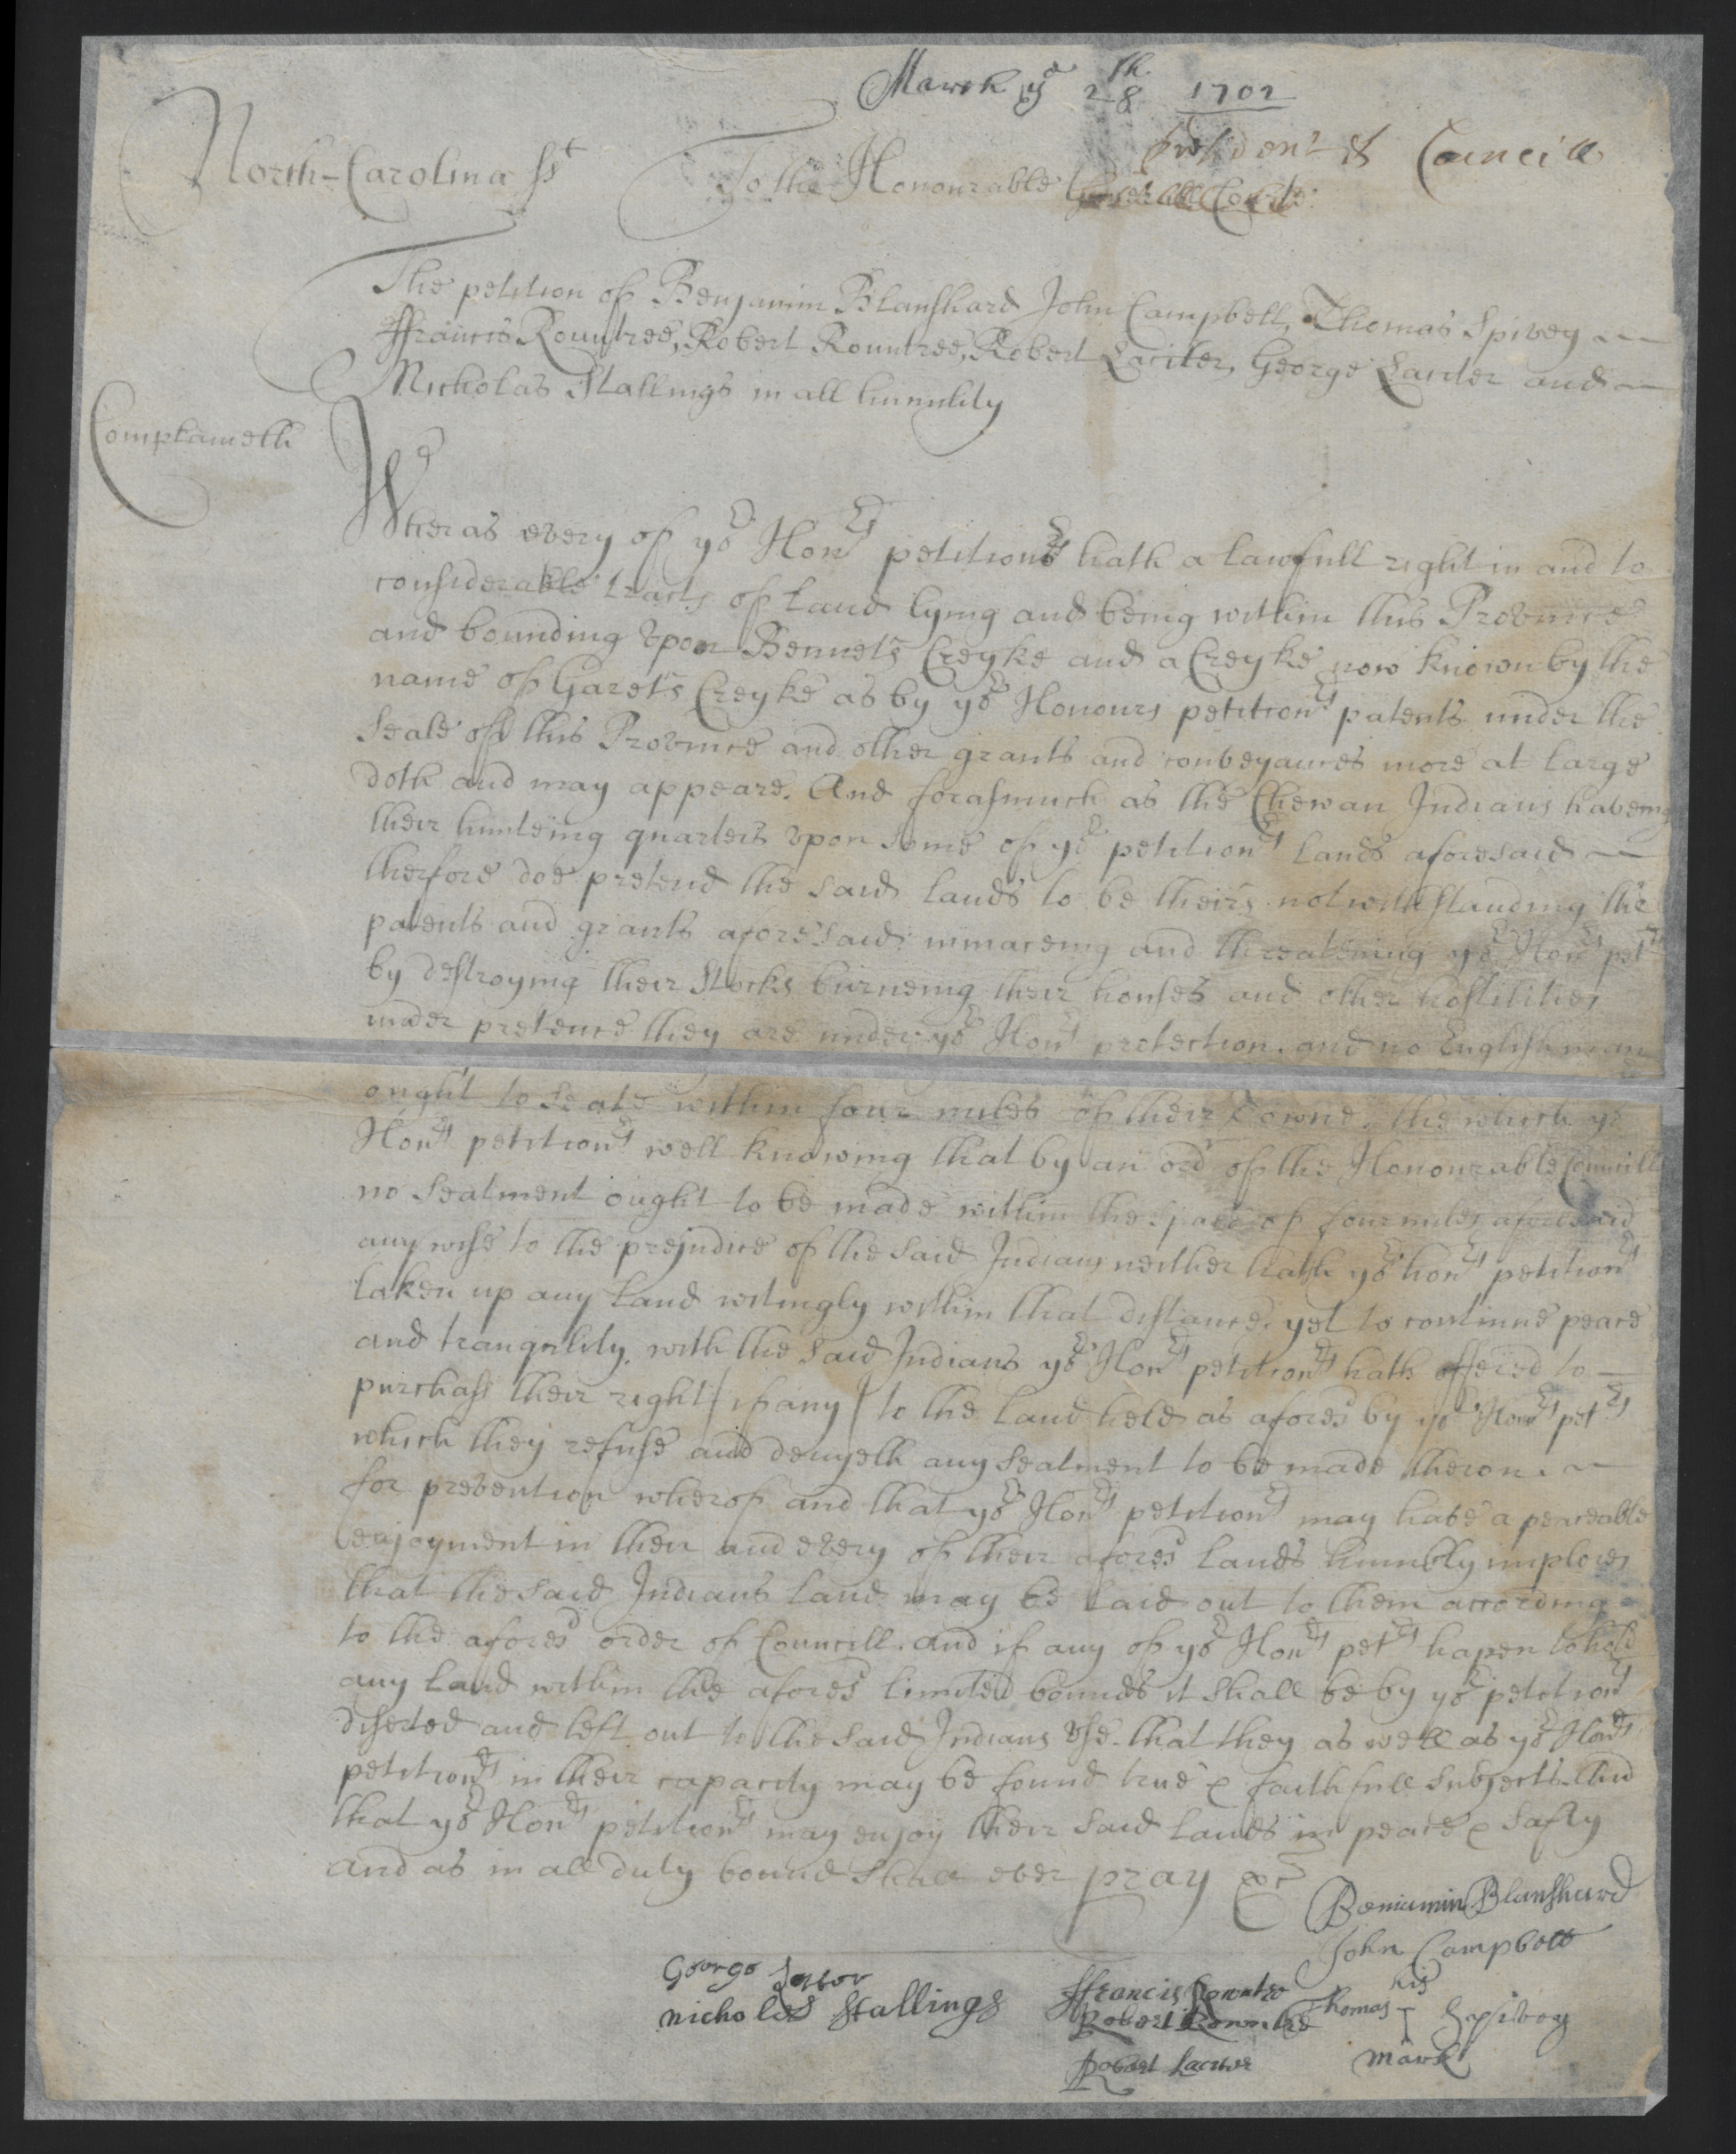 March ye 28th 1702
North-Carolina sst To the Honourable President & Councill
Generall Courte:
The petition of Benjamin Blanshard John Campbell, Thomas Spivey
ffrancis Rountree, Robert Rountree, Robert Laciter, George Laciter and
Nicholas Stallings in all humility
Complaineth
Wheras every of yor Honrs petitionrs hath a lawfull right in and to
considerable tracts of land lying and being within this Province
and bounding vpon Bennets Creyke and a Creyke now known by the
name of Garets Creyke as by yor Honours petitionrs patents under the
Seale of this Province and other grants and conveyances more at large
doth and may appeare. And forasmuch as the Chowan Indians haveing
their hunteing quarters vpon some of yor petitionrs lands aforesaid
therfore doe pretend the said lands to be theirs notwithstanding the
patents and grants aforesaid: mmaceing and threatening yor Honrs petrs
by destroying their Stocks burneing their houses and other hostilities
under pretence they are under yor Honrs protection. and no English man
ought to seate within four miles of their Towne. the which yor
Honrs petitionrs well knowing that by an ordr of the Honourable Councill
no seatment ought to be made within the space of four miles aforesaid
any wise to the prejudice of the said Indians neither hath yor honrs petitionrs
taken up any land witingly within that distance. yet to continue peace
and tranquility. with the said Indians yor Honrs petitionrs hath offered to
purchass their right (if any) to the land held as aforesd by yor Honrs petrs
which they refuse and denyeth any seatment to be made theron.
for prevention wherof and that yor Honrs petitionrs may have a peaceable
enjoyment in their and every of their aforesd lands humbly implores
that the said Indians land may be laid out to them according
to the aforesd order of Councill. and if any of yor Honrs petrs hapen to hold
any land within the aforesd limited bounds it shall be by yor petitionrs
diserted and left out to the said Indians vse. that they as well as yor Honrs
petitionrs in their capacity may be found true & faithfull subjects. And
that yor Honrs petitionrs may enjoy their said lands in peace & safty
and as in all duty bound shall ever pray &c
Beniamin Blanshard
John Campbell
George
nicholes Stallings
ffrancis Rountre
Robert Rountre
Robert Laciter
Thomas his T mark Spivey